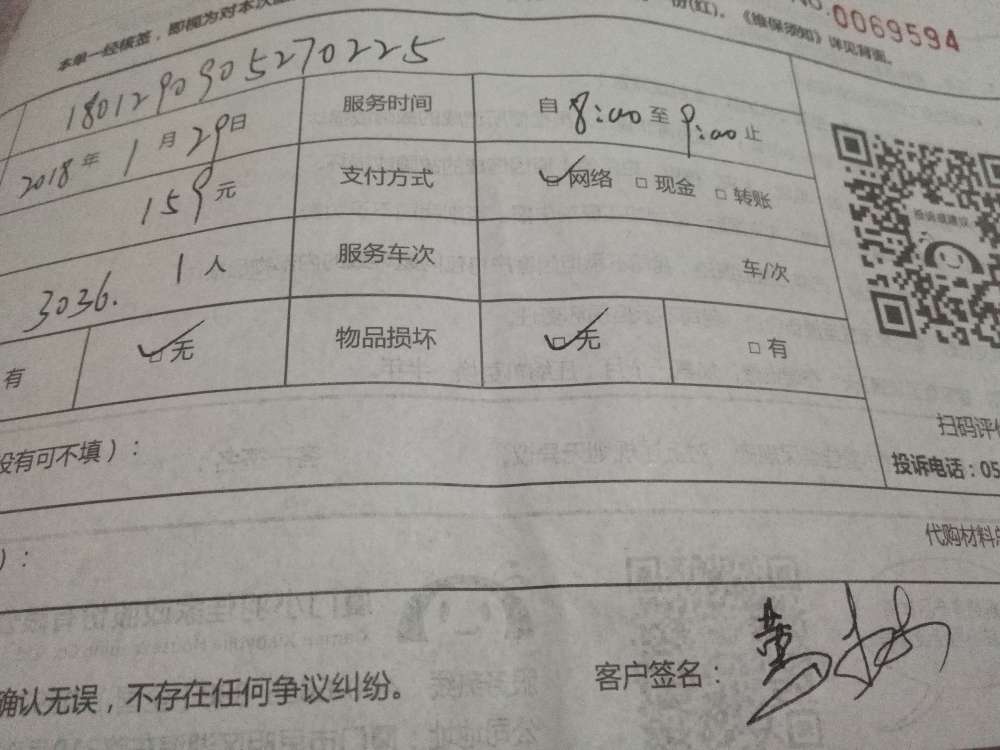 NO.0069594
本单一经核签，即视为对本次服
份(红)。《维保须知》详见背面。
1801290905270225
服务时间 自 8:00 至 9:00 止
2018年 1月 29日
支付方式 ☑网络 □现金 □转账
159元
服务车次 车/次
3036. 1人
有 ☑无 物品损坏 ☑无 □有
投诉或建议
扫码评价
没有可不填）：
投诉电话：05
）：
代购材料总
客户签名：
确认无误，不存在任何争议纠纷。